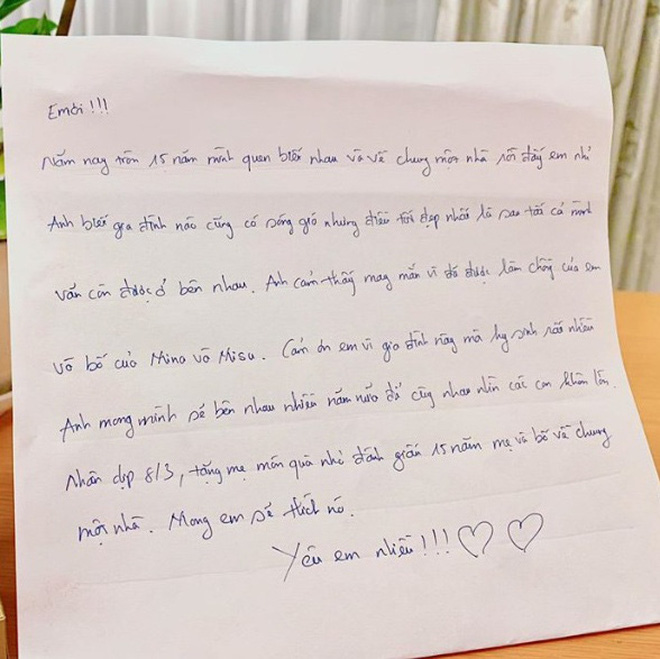 Em ơi!!!
Năm nay tròn 15 năm mình quen biết nhau và về chung một nhà rồi đấy em nhỉ
Anh biết gia đình nào cũng có sóng gió nhưng điều tốt đẹp nhất là sau tất cả mình
vẫn còn được ở bên nhau. Anh cảm thấy may mắn vì đã được làm chồng của em
và bố của Mina và Misu. Cảm ơn em vì gia đình này mà hy sinh rất nhiều
Anh mong mình sẽ bên nhau nhiều năm nữa để cùng nhau nhìn các con khôn lớn.
Nhân dịp 8/3, tặng mẹ món quà nhỏ đánh dấu 15 năm mẹ và bố về chung
một nhà. Mong em sẽ thích nó.
Yêu em nhiều!!! ♡ ♡